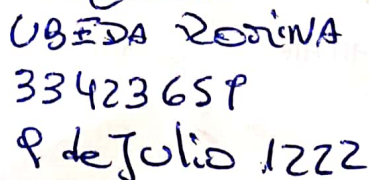 UBEDA ROMINA
33423659
9 de Julio 1222